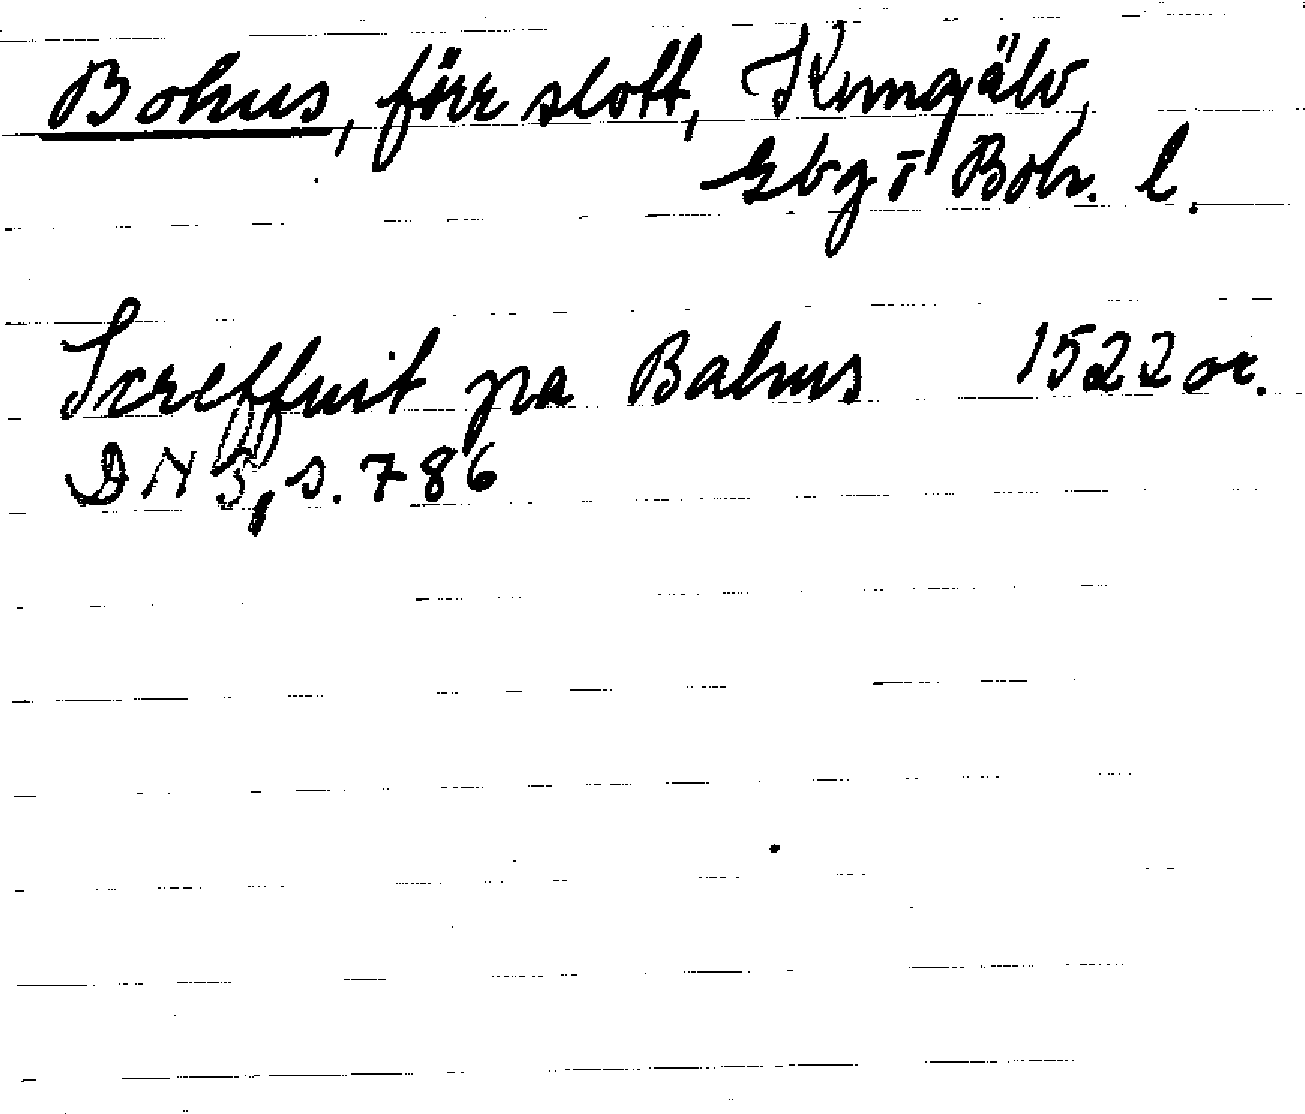 Bohus, förr slott, Kungälv,
Gbg i Boh. l.
Screffuit pa Bahus 1522 or.
DN 5, s. 786